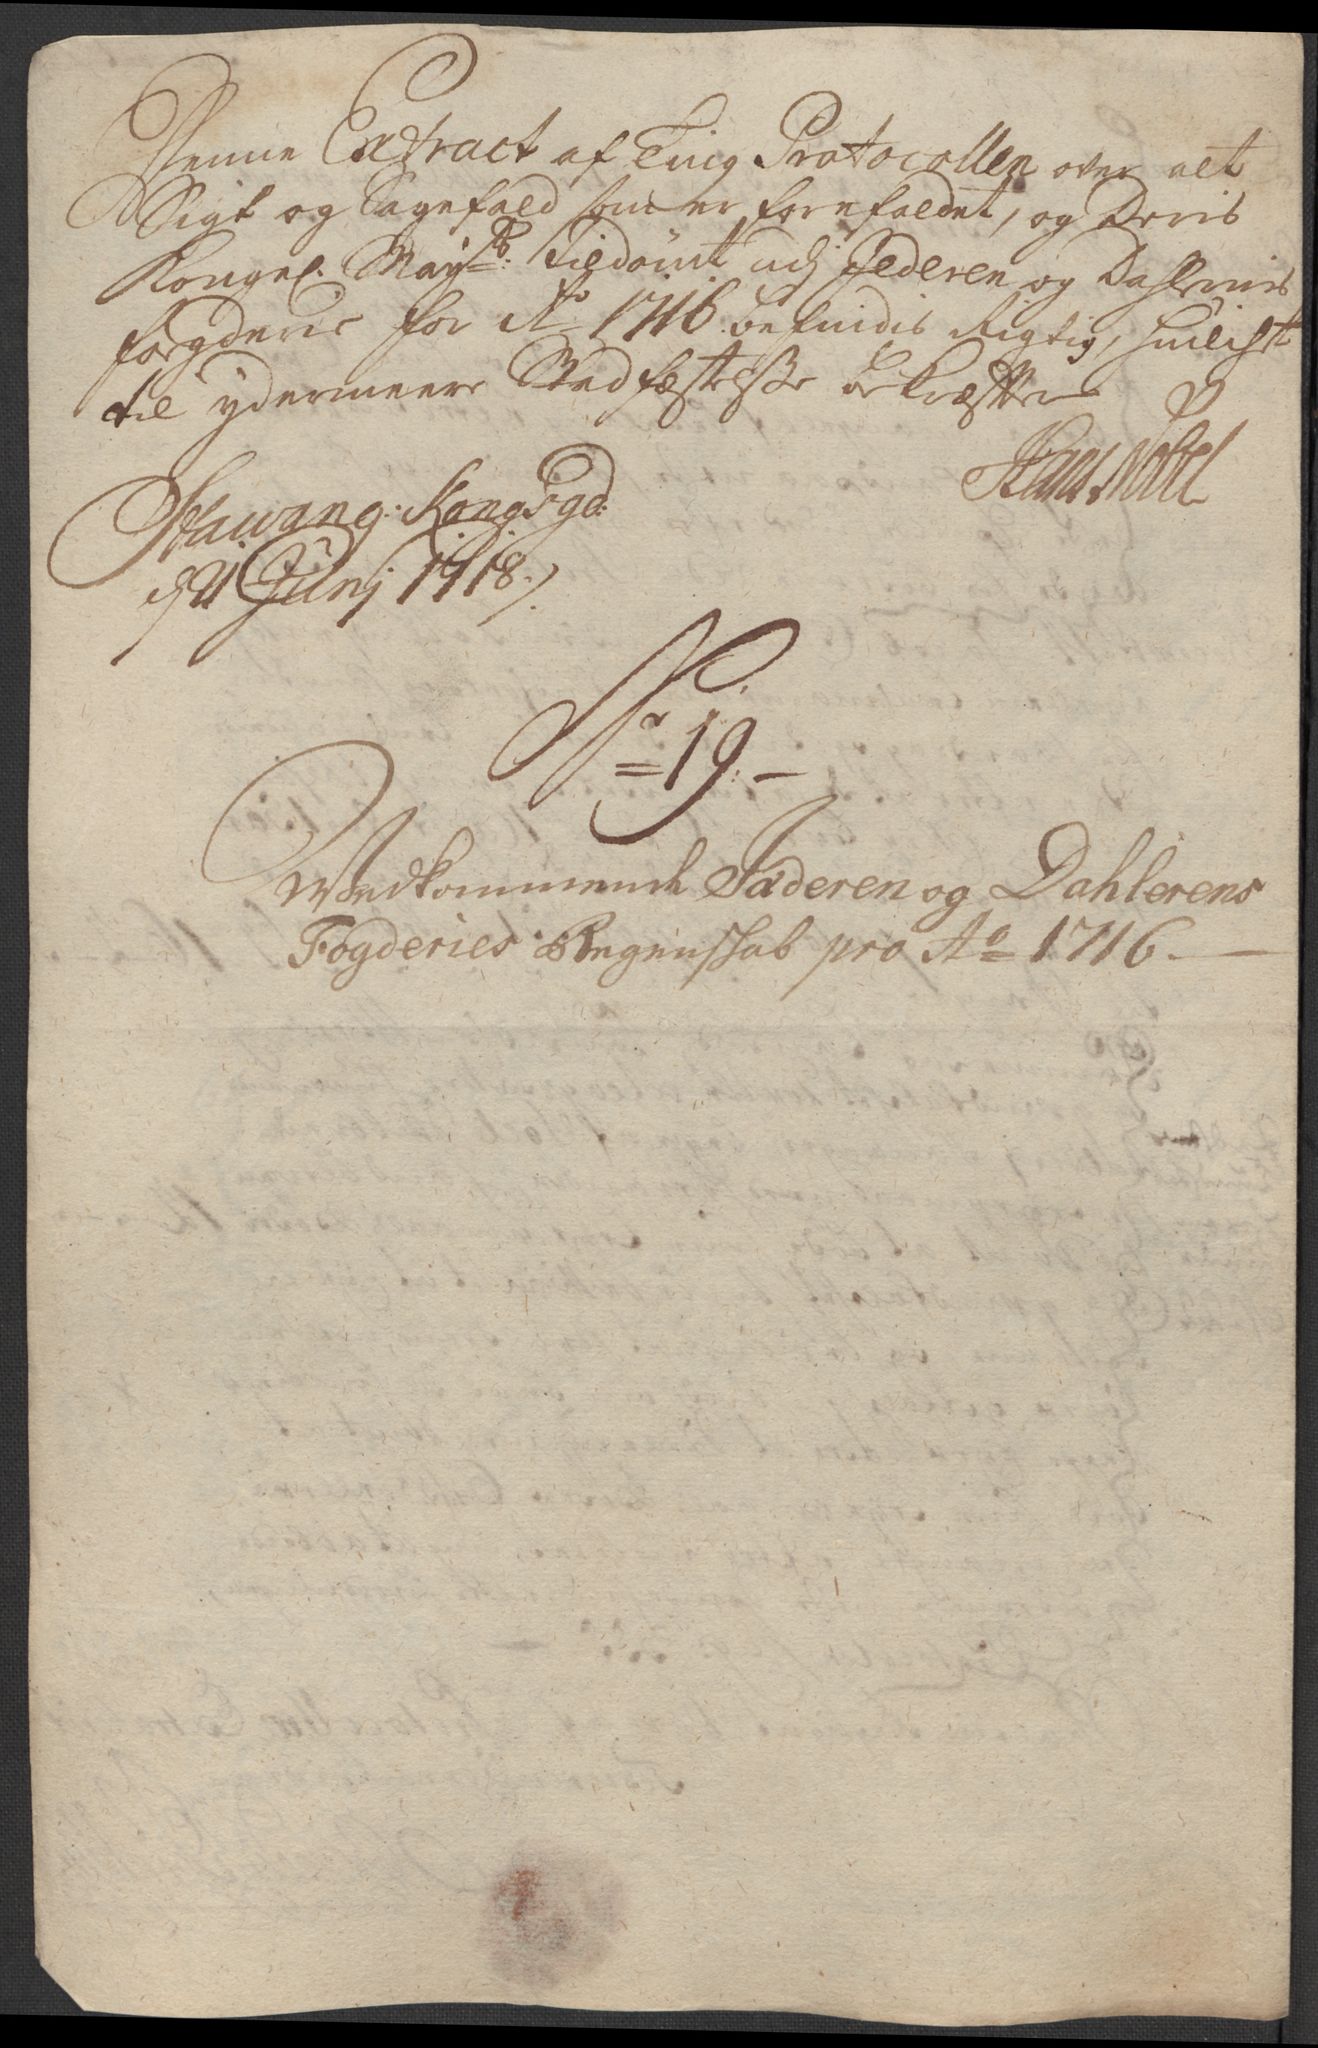 Denne Extract af Ting Protocollen over alt
Sigt og Sagefald som er forefaldet, og Deris
Kongel. Mayᵗˢ: Tildømt udj Jederen og Dahlernis
fogderie for Aᵒ 1716 befindis Rigtig, huilchet
til ydermeere Stadfæstelsse bekræfftes
Hans Nobel
Stawang: Kongsgd:
d 21 Junj 1718 ./.
Nʳ 19. –
Wedkommende Jæderen og Dahlerens
Fogderies Regenskab pro Aᵒ 1716. —